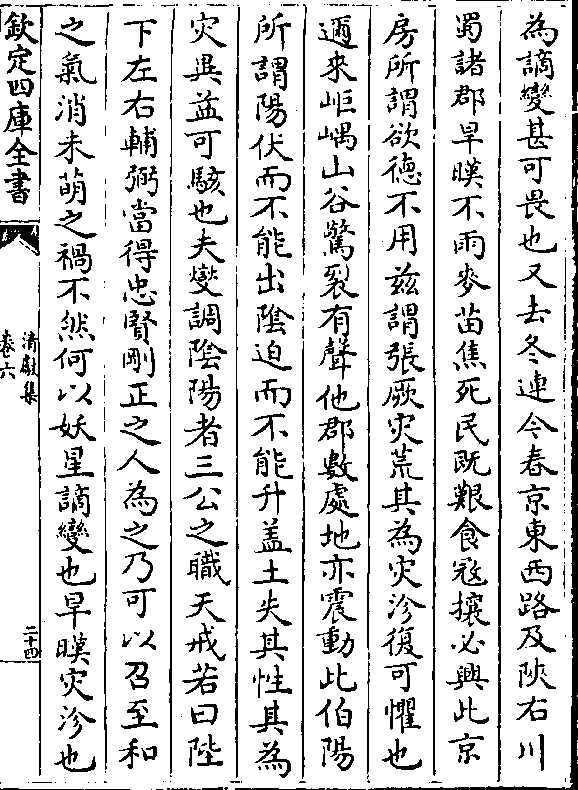 為謫變甚可畏也又去冬連今春京東西路及陜右川
蜀諸郡旱暵不雨麥苗焦死民既艱食寇攘必興此京
房所謂欲德不用兹謂張厥灾荒其為灾沴復可懼也
邇來岠嵎山谷驚裂有聲他郡數處地亦震動此伯陽
所謂陽伏而不能出陰迫而不能升盖土失其性其為
灾異益可駭也夫燮調陰陽者三公之職天戒若曰陛
下左右輔弼當得忠賢剛正之人為之乃可以召至和
之氣消未萌之禍不然何以妖星謫變也旱暵灾沴也
欽定四庫全書
清獻集
卷六
二十四